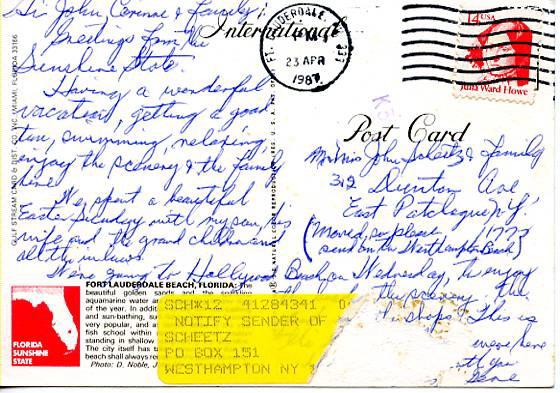 Hi John, Corenne & family,
Greetings from the
Sunshine State.
Having a wonderful
vacation, getting a good
tan, swimming, relaxing,
enjoy the scenery & the family
here.
We spent a beautiful
Easter Sunday with my son, his
wife and the grand children and
all the inlaws
We're going to Hollywood Beach on Wednesday, to enjoy
the scenery. the
shops. This is
were here
with you
Gene
International
FT. LAUDERDALE, FL 333
PM
23 APR
1987
14 USA
Julia Ward Howe
Post Card
Mr & Mrs John Scheetz & family
312 Dunton Ave
East Patchogue N.Y.
11772
(Moved, so please
send on the Westhampton Beach)
GULF STREAM CARD & DIST. CO. INC. MIAMI, FLORIDA 33166
FORT LAUDERDALE BEACH, FLORIDA: The
beautiful golden sands and the sparkling
aquamarine water
of the year. In addition
and sun-bathing, su
very popular, and a
fish school within
standing in shallow
The city itself has
beach shall always
Photo: D. Noble, J
FLORIDA
SUNSHINE
STATE
SCHX12 41284341 0
NOTIFY SENDER OF
SCHEETZ
PO BOX 151
WESTHAMPTON NY